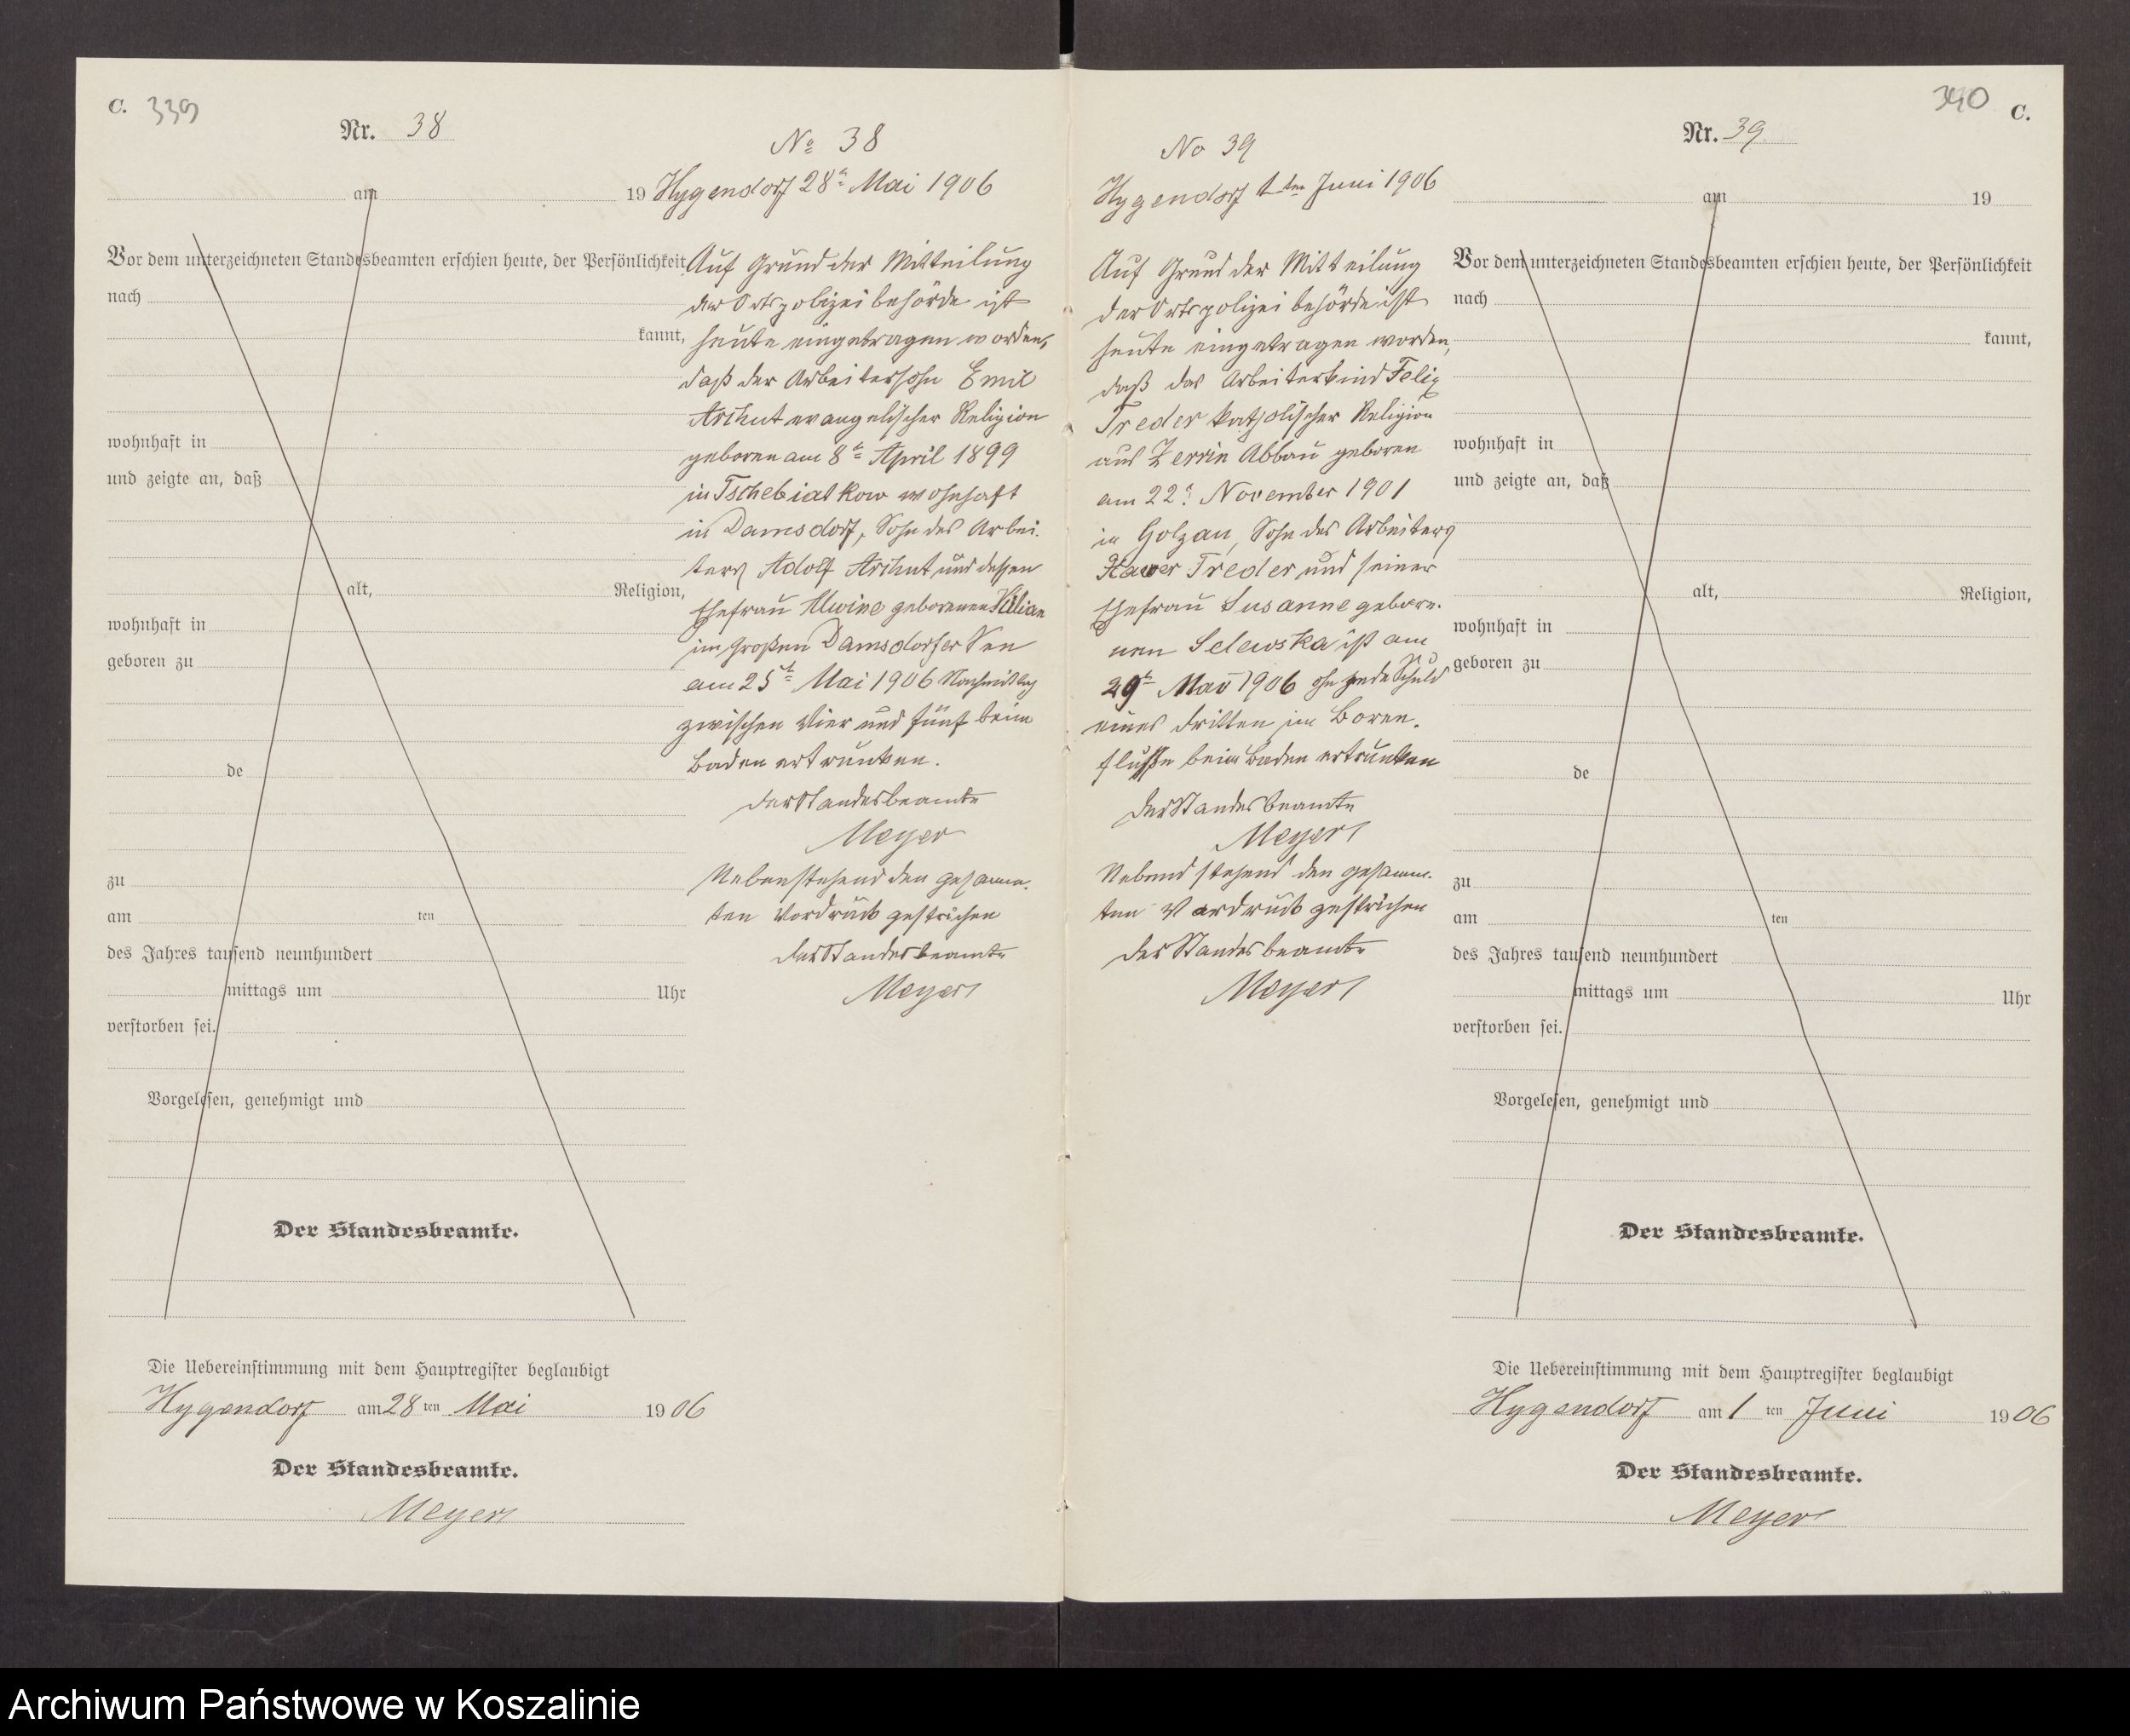 C. 339
Nr. 38
am 19
Vor dem unterzeichneten Standesbeamten erschien heute, der Persönlichkeit
nach
kannt,
wohnhaft in
und zeigte an, daß
alt, Religion,
wohnhaft in
geboren zu
de
zu
am ten
des Jahres tausend neunhundert
mittags um Uhr
verstorben sei.
Vorgelesen, genehmigt und
Der Standesbeamte.
Die Uebereinstimmung mit dem Hauptregister beglaubigt
Hygendorf am 28 ten Mai 1906
Der Standesbeamte.
Meyer
No 38
Hygendorf 28t Mai 1906
Auf Grund der Mitteilung
der Ortspolizeibehörde ist
heute eingetragen worden,
daß der Arbeitersohn Emil
evangelischer Religion
geboren am 8t April 1899
in Tschebiatkow wohnhaft
in Damsdorf, Sohn des Arbei-
ters Adolf und dessen
Ehefrau Alwine geborenen Kilian
im Großen Damsdorfer See
am 25t Mai 1906 Nachmittag
zwischen Vier und Fünf beim
Baden ertrunken.
Der Standesbeamte
Meyer
Nebenstehend den gesamm-
ten Vordruck gestrichen
Der Standesbeamte
Meyer
No 39
Hygendorf 1ten Juni 1906
Auf Grund der Mitteilung
der Ortspolizeibehörde ist
heute eingetragen worden,
daß das Arbeiterkind Felix
Treder katholischer Religion
aus Zerrin Abbau geboren
am 22t November 1901
in Golzau, Sohn des Arbeiters
Xaver Treder und seiner
Ehefrau Susanne gebore-
nen Selewska ist am
29t Mai 1906 ohne jede Schuld
eines dritten im Boren-
flusse beim Baden ertrunken
Der Standesbeamte
Meyer
Nebendstehend den gesamm-
ten Vordruck gestrichen
Der Standesbeamte
Meyer
340 C.
Nr. 39
am 19
Vor dem unterzeichneten Standesbeamten erschien heute, der Persönlichkeit
nach
kannt,
wohnhaft in
und zeigte an, daß
alt, Religion,
wohnhaft in
geboren zu
de
zu
am ten
des Jahres tausend neunhundert
mittags um Uhr
verstorben sei.
Vorgelesen, genehmigt und
Der Standesbeamte.
Die Uebereinstimmung mit dem Hauptregister beglaubigt
Hygendorf am 1 ten Juni 1906
Der Standesbeamte.
Meyer
Archiwum Państwowe w Koszalinie